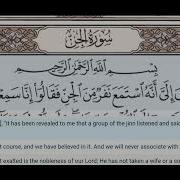 سورة الجن
بِسْمِ اللَّهِ الرَّحْمَٰنِ الرَّحِيمِ
إِلَىَّ أَنَّهُ ٱسْتَمَعَ نَفَرٌ مِّنَ ٱلْجِنِّ فَقَالُوٓا۟ إِنَّا سَمِعْ
], "It has been revealed to me that a group of the jinn listened and said
t course, and we have believed in it. And we will never associate with
t exalted is the nobleness of our Lord; He has not taken a wife or a s